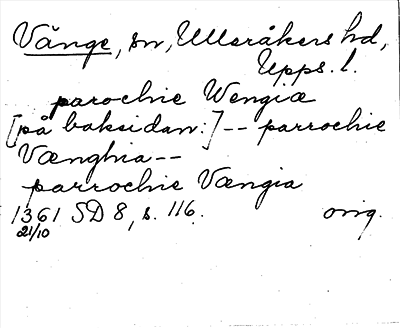 Vänge, sn, Ulleråkers hd,
Upps. l.
parochie Wengiæ
[på baksidan:] -- parrochie
Vænghia --
parrochie Vængia
1361 SD 8, s. 116. orig.
21/10